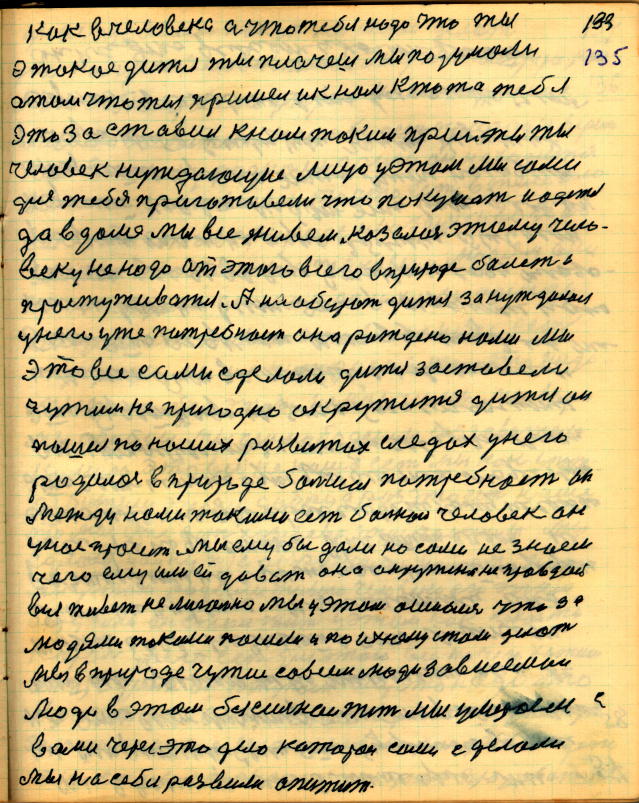 как в человека а что тебя надо что ты 133
этокое дитя ты плачеш мы подумали 135
атом что ты пришел ик нам Кто та тебя
это заставил кнам таким прийти ты
человек нуждающие лицо у этом мы сами
для тебя приготовели что покушат и одет
да в доме мы все живем, казалос этому чело-
веку не надо от этого всего в природе болет и
простуживатя. А на оборот дитя зануждалос
у него уже потребност она рождено нами мы
это все сами сделали дитя заставели
чужим не пригодно окружится дитя он
пошел по наших развитых следах у него
родилос в природе болшая потребност он
между нами такими ест болной человек он
у нас просит. Мы ему бы дали но сами не знаем
чего ему или ей дават она окружена не правдой
вся живет не лигално мы у этом ошиблис что за
людями такими пошли и по ихнему стали делат
мея в природе чужие совсем люди зависемаи
Люди в этом безсилност тот мы умераем с
вами через это дело каторая сами сделали
мы на себя развили опитит.